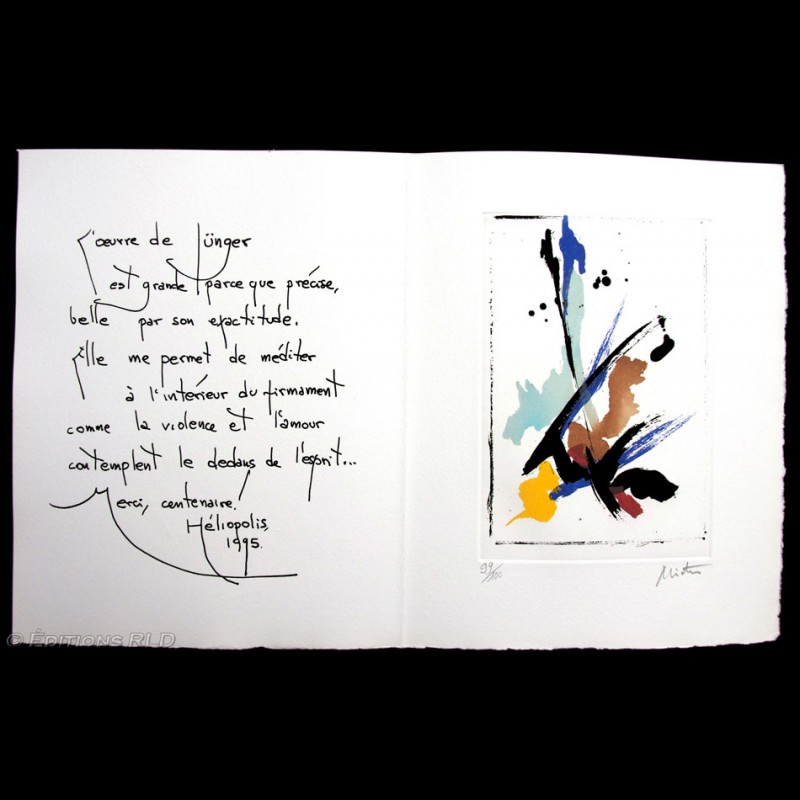 L'œuvre de Jünger
est grande parce que précise,
belle par son exactitude.
Elle me permet de méditer
à l'intérieur du firmament
comme la violence et l'amour
contemplent le dedans de l'esprit...
Merci, centenaire!
Héliopolis,
1995.
99/100
© Éditions RLD